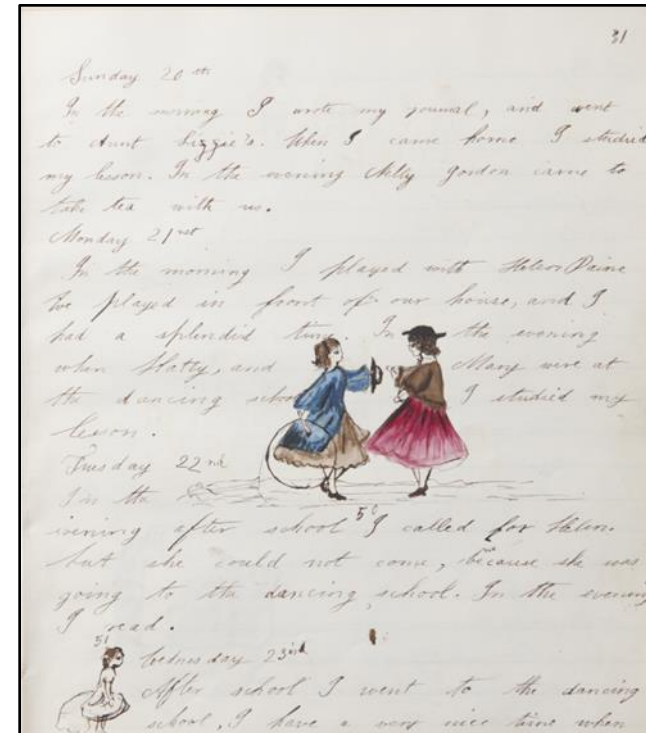 31
Sunday 20th
In the morning I wrote my journal, and went
to Aunt Lizzie's. When I came home I studied
my lesson. In the evening Nelly Gordon came to
take tea with us.
Monday 21st
In the morning I played with Helen Paine
We played in front of our house, and I
had a splendid time. In the evening
when Hatty, and Mary were at
the dancing school I studied my
lesson.
Tuesday 22nd
In the
50
evening after school I called for Helen.
but she could not come, because she was
going to the dancing school. In the evening
I read.
51
Wednesday 23rd
After school I went to the dancing
school, I have a very nice time when